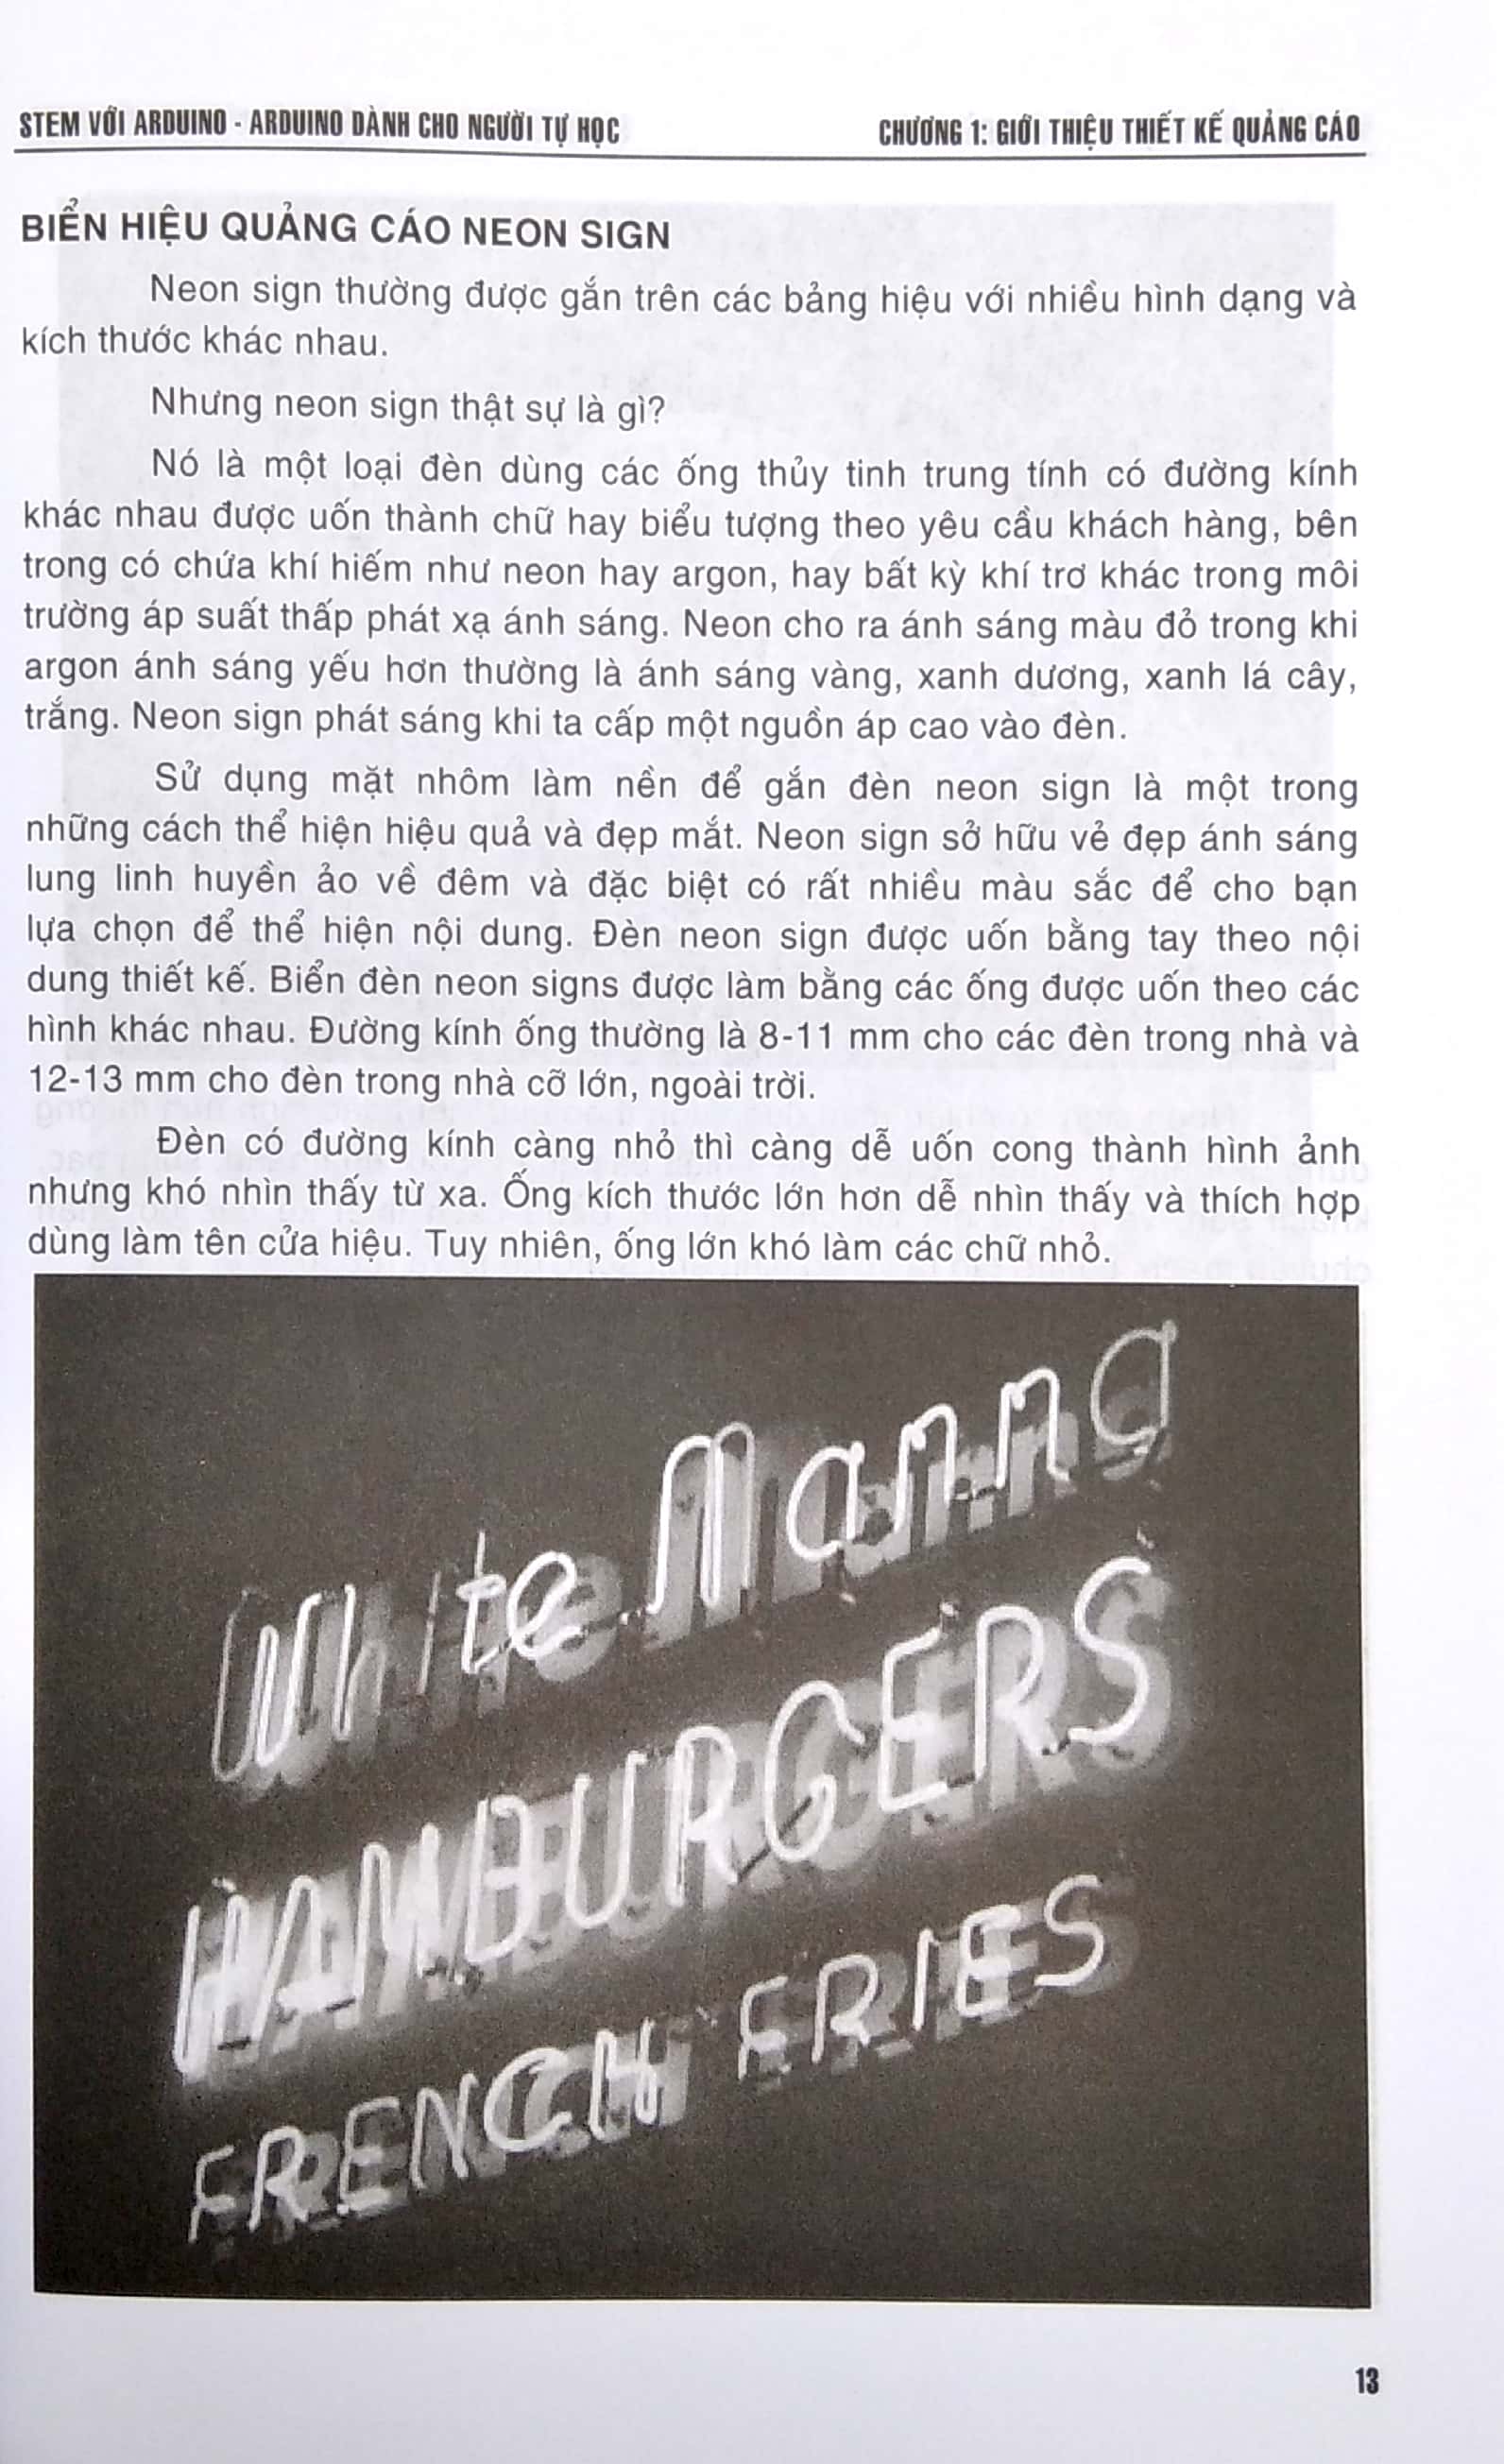 STEM VỚI ARDUINO - ARDUINO DÀNH CHO NGƯỜI TỰ HỌC
CHƯƠNG 1: GIỚI THIỆU THIẾT KẾ QUẢNG CÁO
BIỂN HIỆU QUẢNG CÁO NEON SIGN
Neon sign thường được gắn trên các bảng hiệu với nhiều hình dạng và
kích thước khác nhau.
Nhưng neon sign thật sự là gì?
Nó là một loại đèn dùng các ống thủy tinh trung tính có đường kính
khác nhau được uốn thành chữ hay biểu tượng theo yêu cầu khách hàng, bên
trong có chứa khí hiếm như neon hay argon, hay bất kỳ khí trơ khác trong môi
trường áp suất thấp phát xạ ánh sáng. Neon cho ra ánh sáng màu đỏ trong khi
argon ánh sáng yếu hơn thường là ánh sáng vàng, xanh dương, xanh lá cây,
trắng. Neon sign phát sáng khi ta cấp một nguồn áp cao vào đèn.
Sử dụng mặt nhôm làm nền để gắn đèn neon sign là một trong
những cách thể hiện hiệu quả và đẹp mắt. Neon sign sở hữu vẻ đẹp ánh sáng
lung linh huyền ảo về đêm và đặc biệt có rất nhiều màu sắc để cho bạn
lựa chọn để thể hiện nội dung. Đèn neon sign được uốn bằng tay theo nội
dung thiết kế. Biển đèn neon signs được làm bằng các ống được uốn theo các
hình khác nhau. Đường kính ống thường là 8-11 mm cho các đèn trong nhà và
12-13 mm cho đèn trong nhà cỡ lớn, ngoài trời.
Đèn có đường kính càng nhỏ thì càng dễ uốn cong thành hình ảnh
nhưng khó nhìn thấy từ xa. Ống kích thước lớn hơn dễ nhìn thấy và thích hợp
dùng làm tên cửa hiệu. Tuy nhiên, ống lớn khó làm các chữ nhỏ.
White Manna
HAMBURGERS
FRENCH FRIES
13